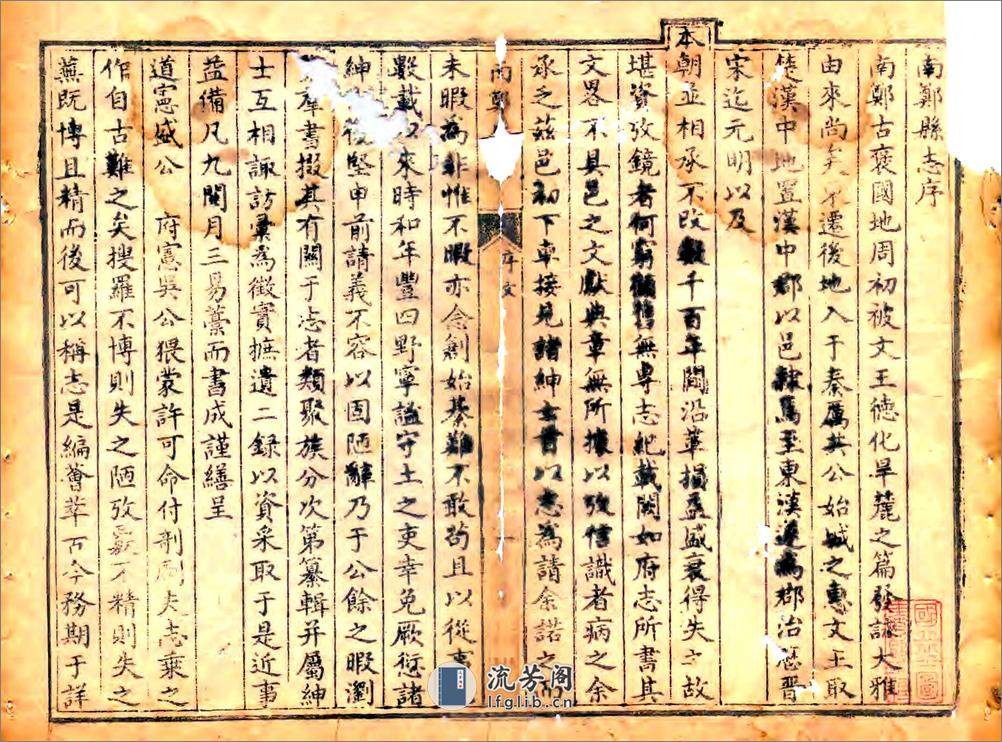 南鄭縣志序
南鄭古褒國地周初被文王德化旱麓之篇發詠大雅
由來尚矣 遷後地入于秦厲共公始城之惠文王取
楚漢中地置漢中郡以邑隸焉至東漢遂為郡治歷晉
宋迄元明以及
本朝並相承不改 千百年間沿革損益盛衰得失之故
堪資攷鏡者何窮 無專志紀載闕如府志所書其
文畧不具邑之文獻典章無所據以徵信識者病之余
承乏茲邑初下車接見諸紳士首以志為請余諾之
南鄭
序文
未暇為非惟不暇亦念創始綦難不敢苟且以從事
數載以來時和年豐四野寧謐守土之吏幸免厥愆諸
紳 復堅申前請義不容以固陋辭乃于公餘之暇瀏
羣書掇其有關于志者類聚族分次第纂輯并屬紳
士互相諏訪彙為徵實摭遺二録以資采取于是近事
益備凡九閱月三易藁而書成謹繕呈
道憲盛公 府憲吳公猥蒙許可命付剞劂夫志乘之
作自古難之矣搜羅不博則失之陋攷覈不精則失之
蕪既博且精而後可以稱志是編薈萃古今務期于詳
流芳阁
lfglib.cn